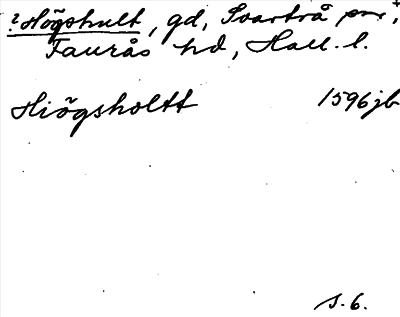 ?Högshult, gd, Svartrå sn,
Faurås hd, Hall. l.
Hiögsholtt 1596 jb
s. 6.